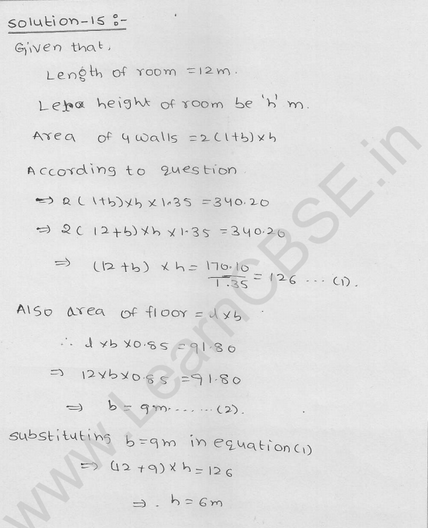 Solution-15 :-
Given that,
Length of room = 12m.
Let height of room be 'h' m.
Area of 4 walls = 2(l+b)×h
According to question
⇒ 2(l+b)×h×1.35 = 340.20
⇒ 2(12+b)×h×1.35 = 340.20
⇒ (12+b) ×h = 170.10/1.35 = 126 ... (1).
Also area of floor = l×b
∴ l×b×0.85 = 91.80
⇒ 12×b×0.85 = 91.80
⇒ b = 9m. ..... (2).
substituting b=9m in equation(1)
⇒ (12+9)×h = 126
⇒ . h = 6m
www.LearnCBSE.in